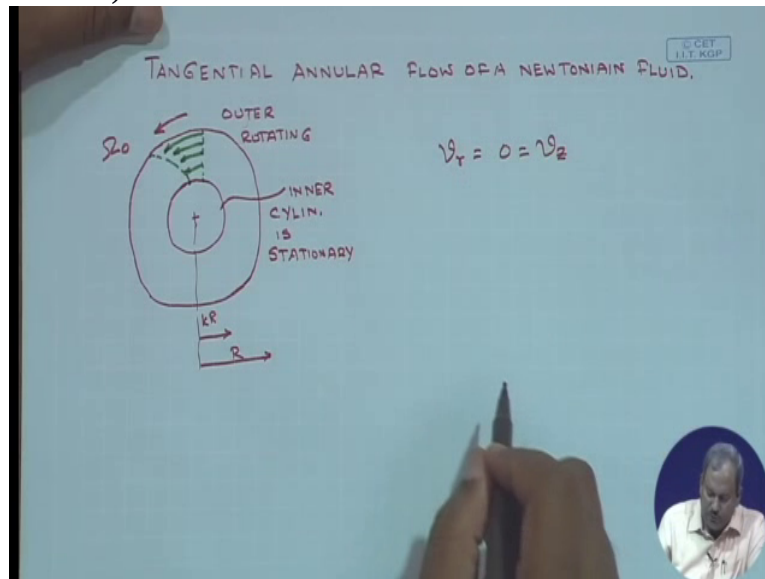 © CET
I.I.T. KGP
TANGENTIAL ANNULAR FLOW OF A NEWTONIAIN FLUID.
OUTER
ROTATING
Ω0
INNER
CYLIN.
IS
STATIONARY
kR
R
υr = 0 = υz